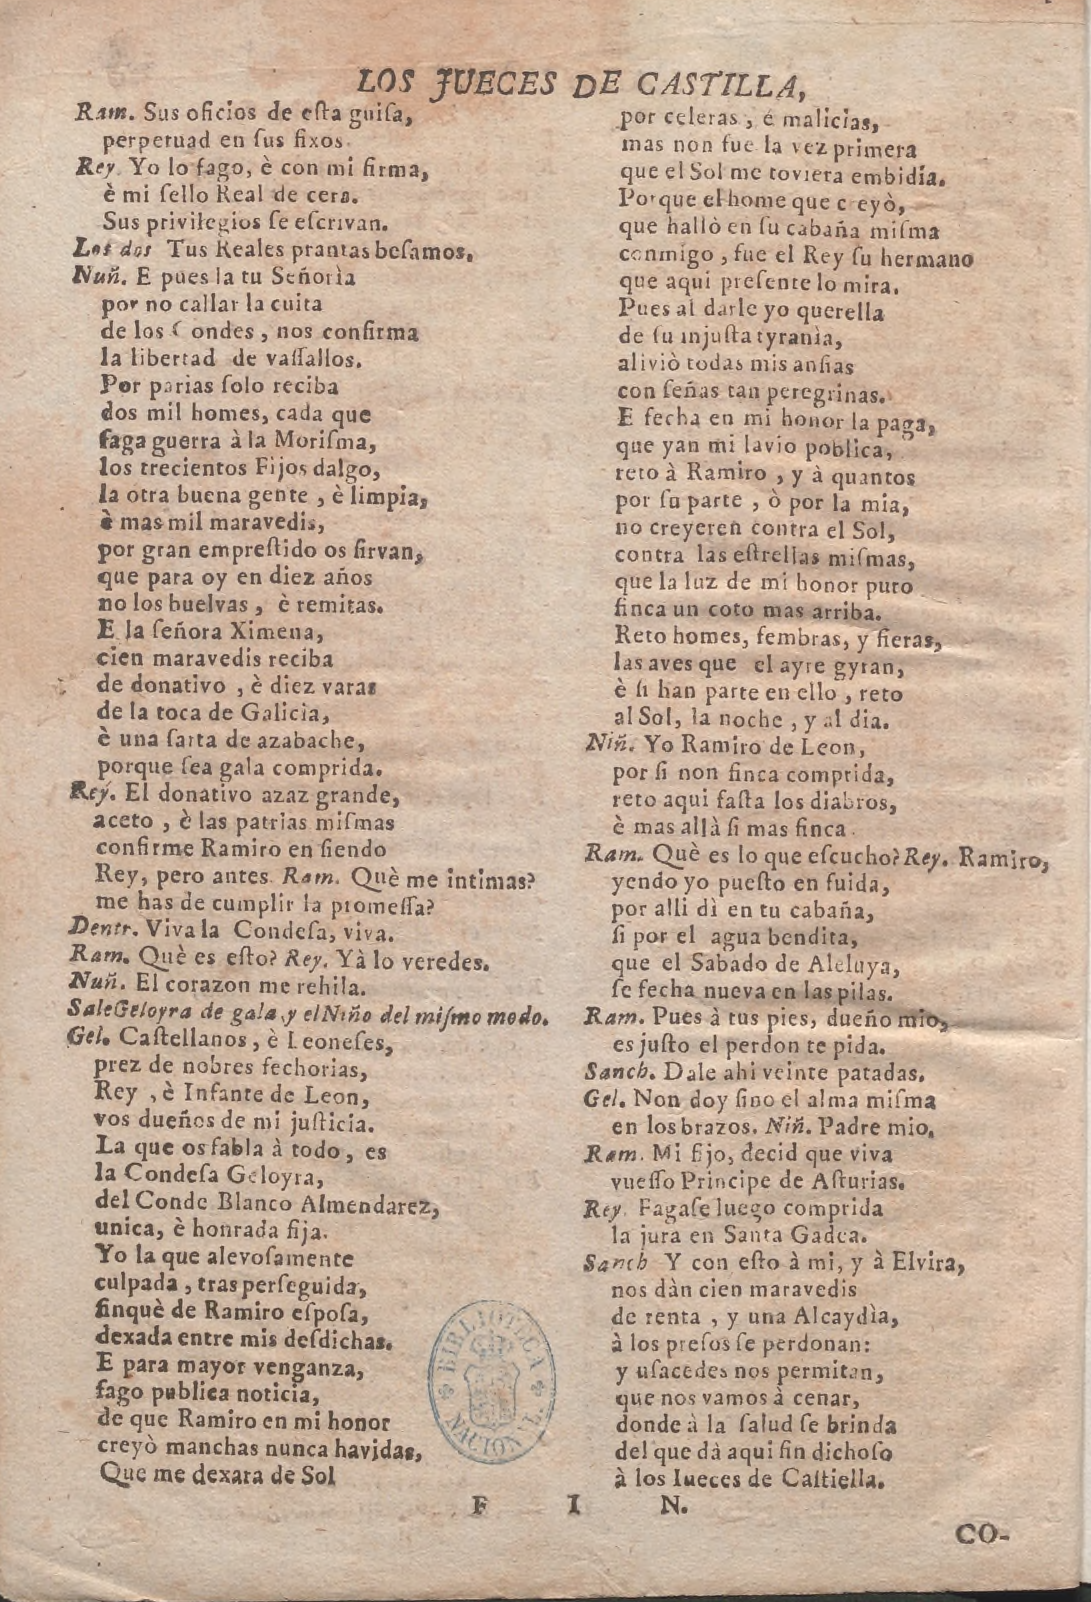 LOS JUECES DE CASTILLA,
Ram. Sus oficios de eſta guiſa,
perpetuad en ſus fixos.
Rey. Yo lo fago, è con mi firma,
è mi ſello Real de cera.
Sus privilegios ſe eſcrivan.
Los dos Tus Reales prantas beſamos.
Nuñ. E pues la tu Señorìa
por no callar la cuita
de los Condes, nos confirma
la libertad de vaſſallos.
Por parias ſolo reciba
dos mil homes, cada que
faga guerra à la Moriſma,
los trecientos Fijos dalgo,
la otra buena gente, è limpia,
è mas mil maravedis,
por gran empreſtido os ſirvan,
que para oy en diez años
no los buelvas, è remitas.
E la ſeñora Ximena,
cien maravedis reciba
de donativo, è diez varas
de la toca de Galicia,
è una ſarta de azabache,
porque ſea gala comprida.
Rey. El donativo azaz grande,
aceto, è las patrias miſmas
confirme Ramiro en ſiendo
Rey, pero antes. Ram. Què me intimas?
me has de cumplir la promeſſa?
Dentr. Viva la Condeſa, viva.
Ram. Què es eſto? Rey. Yà lo veredes.
Nuñ. El corazon me rehila.
Sale Geloyra de gala, y el Niño del miſmo modo.
Gel. Caſtellanos, è Leoneſes,
prez de nobres fechorias,
Rey, è Infante de Leon,
vos dueños de mi juſticia.
La que os fabla à todo, es
la Condeſa Geloyra,
del Conde Blanco Almendarez,
unica, è honrada fija.
Yo la que alevoſamente
culpada, tras perſeguida,
finquè de Ramiro eſpoſa,
dexada entre mis deſdichas.
E para mayor venganza,
fago publica noticia,
de que Ramiro en mi honor
creyò manchas nunca havidas,
Que me dexara de Sol
por celeras, è malicias,
mas non fue la vez primera
que el Sol me toviera embidia.
Porque el home que creyò,
que hallò en ſu cabaña miſma
conmigo, fue el Rey ſu hermano
que aqui preſente lo mira.
Pues al darle yo querella
de ſu injuſta tyranìa,
aliviò todas mis anſias
con ſeñas tan peregrinas.
E fecha en mi honor la paga,
que yan mi lavio poblica,
reto à Ramiro, y à quantos
por ſu parte, ò por la mia,
no creyeren contra el Sol,
contra las eſtrellas miſmas,
que la luz de mi honor puro
finca un coto mas arriba.
Reto homes, fembras, y fieras,
las aves que el ayre gyran,
è ſi han parte en ello, reto
al Sol, la noche, y al dia.
Niñ. Yo Ramiro de Leon,
por ſi non finca comprida,
reto aqui faſta los diabros,
è mas allà ſi mas finca.
Ram. Què es lo que eſcucho? Rey. Ramiro,
yendo yo pueſto en fuida,
por alli dì en tu cabaña,
ſi por el agua bendita,
que el Sabado de Aleluya,
ſe fecha nueva en las pilas.
Ram. Pues à tus pies, dueño mio,
es juſto el perdon te pida.
Sanch. Dale ahi veinte patadas.
Gel. Non doy ſino el alma miſma
en los brazos. Niñ. Padre mio.
Ram. Mi fijo, decid que viva
vueſſo Principe de Aſturias.
Rey. Fagaſe luego comprida
la jura en Santa Gadea.
Sanch Y con eſto à mi, y à Elvira,
nos dàn cien maravedis
de renta, y una Alcaydìa,
à los preſos ſe perdonan:
y uſacedes nos permitan,
que nos vamos à cenar,
donde à la ſalud ſe brinda
del que dà aqui fin dichoſo
à los Iueces de Caſtiella.
F I N.
CO-
BIBLIOTECA NACIONAL